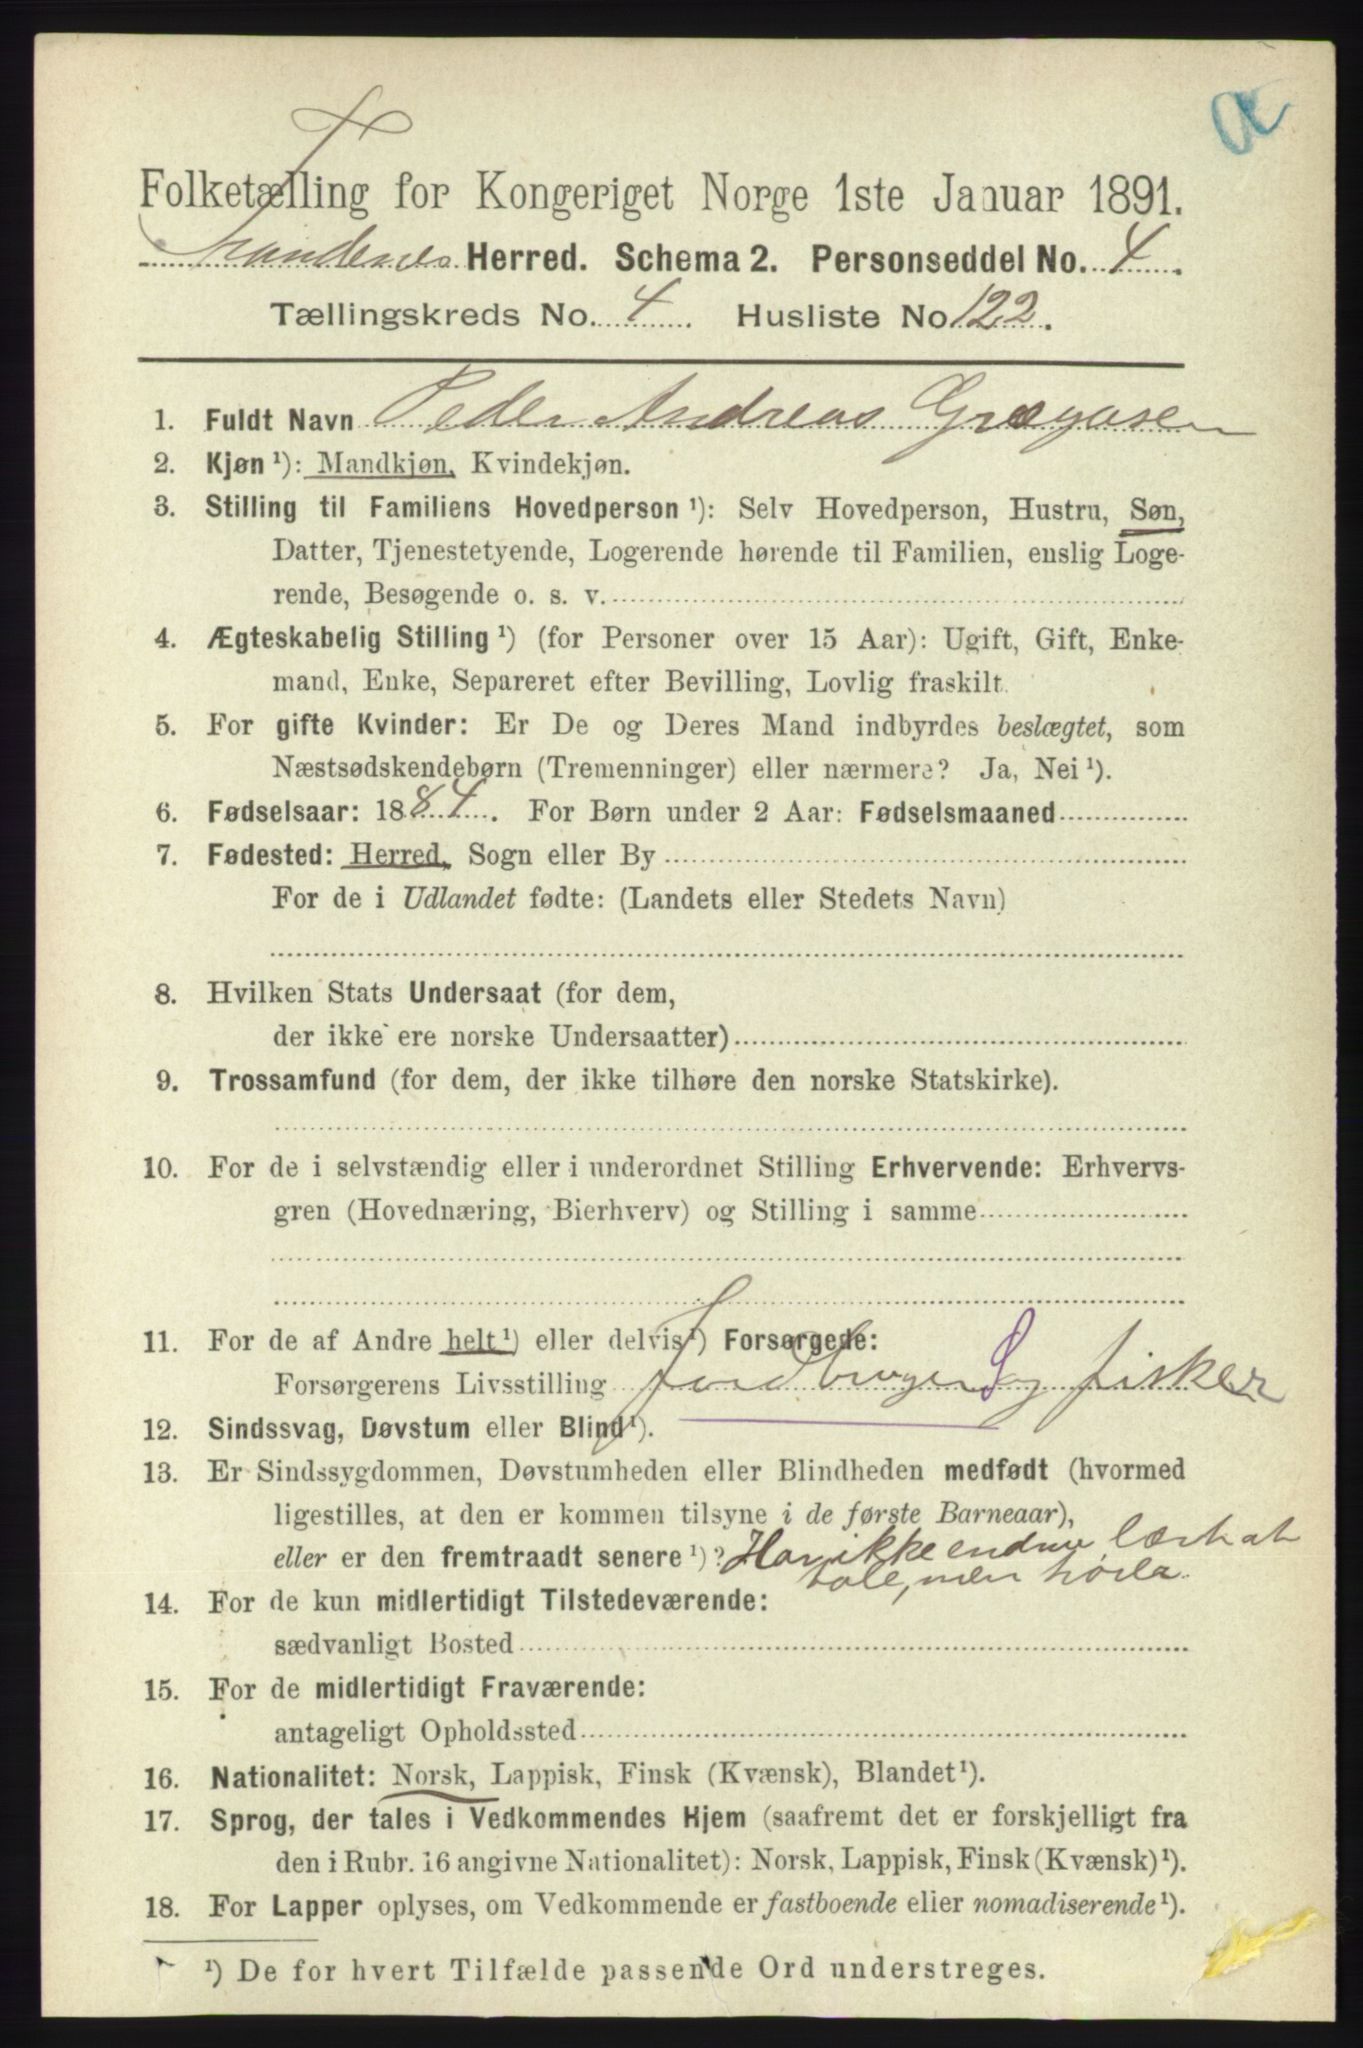 Œ
Folketælling for Kongeriget Norge 1ste Januar 1891.
Trondenes Herred. Schema 2. Personseddel No. 4.
Tællingskreds No. 4. Husliste No. 122.
1. Fuldt Navn Peder Andreas Grægusen
2. Kjøn ¹): Mandkjøn, Kvindekjøn.
3. Stilling til Familiens Hovedperson ¹): Selv Hovedperson, Hustru, Søn,
Datter, Tjenestetyende, Logerende hørende til Familien, enslig Loge-
rende, Besøgende o. s. v.
4. Ægteskabelig Stilling ¹) (for Personer over 15 Aar): Ugift, Gift, Enke-
mand, Enke, Separeret efter Bevilling, Lovlig fraskilt.
5. For gifte Kvinder: Er De og Deres Mand indbyrdes beslægtet, som
Næstsødskendebørn (Tremenninger) eller nærmere? Ja, Nei ¹).
6. Fødselsaar: 1884. For Børn under 2 Aar: Fødselsmaaned
7. Fødested: Herred, Sogn eller By
For de i Udlandet fødte: (Landets eller Stedets Navn)
8. Hvilken Stats Undersaat (for dem,
der ikke ere norske Undersaatter)
9. Trossamfund (for dem, der ikke tilhøre den norske Statskirke).
10. For de i selvstændig eller i underordnet Stilling Erhvervende: Erhvervs-
gren (Hovednæring, Bierhverv) og Stilling i samme
11. For de af Andre helt ¹) eller delvis ¹) Forsørgede:
Forsørgerens Livsstilling Jordbruger og fisker
12. Sindssvag, Døvstum eller Blind ¹).
13. Er Sindssygdommen, Døvstumheden eller Blindheden medfødt (hvormed
ligestilles, at den er kommen tilsyne i de første Barneaar),
eller er den fremtraadt senere ¹)? Har ikke endnu lært at
tale, men hører
14. For de kun midlertidigt Tilstedeværende:
sædvanligt Bosted
15. For de midlertidigt Fraværende:
antageligt Opholdssted
16. Nationalitet: Norsk, Lappisk, Finsk (Kvænsk), Blandet ¹).
17. Sprog, der tales i Vedkommendes Hjem (saafremt det er forskjelligt fra
den i Rubr. 16 angivne Nationalitet): Norsk, Lappisk, Finsk (Kvænsk) ¹).
18. For Lapper oplyses, om Vedkommende er fastboende eller nomadiserende ¹).
¹) De for hvert Tilfælde passende Ord understreges.